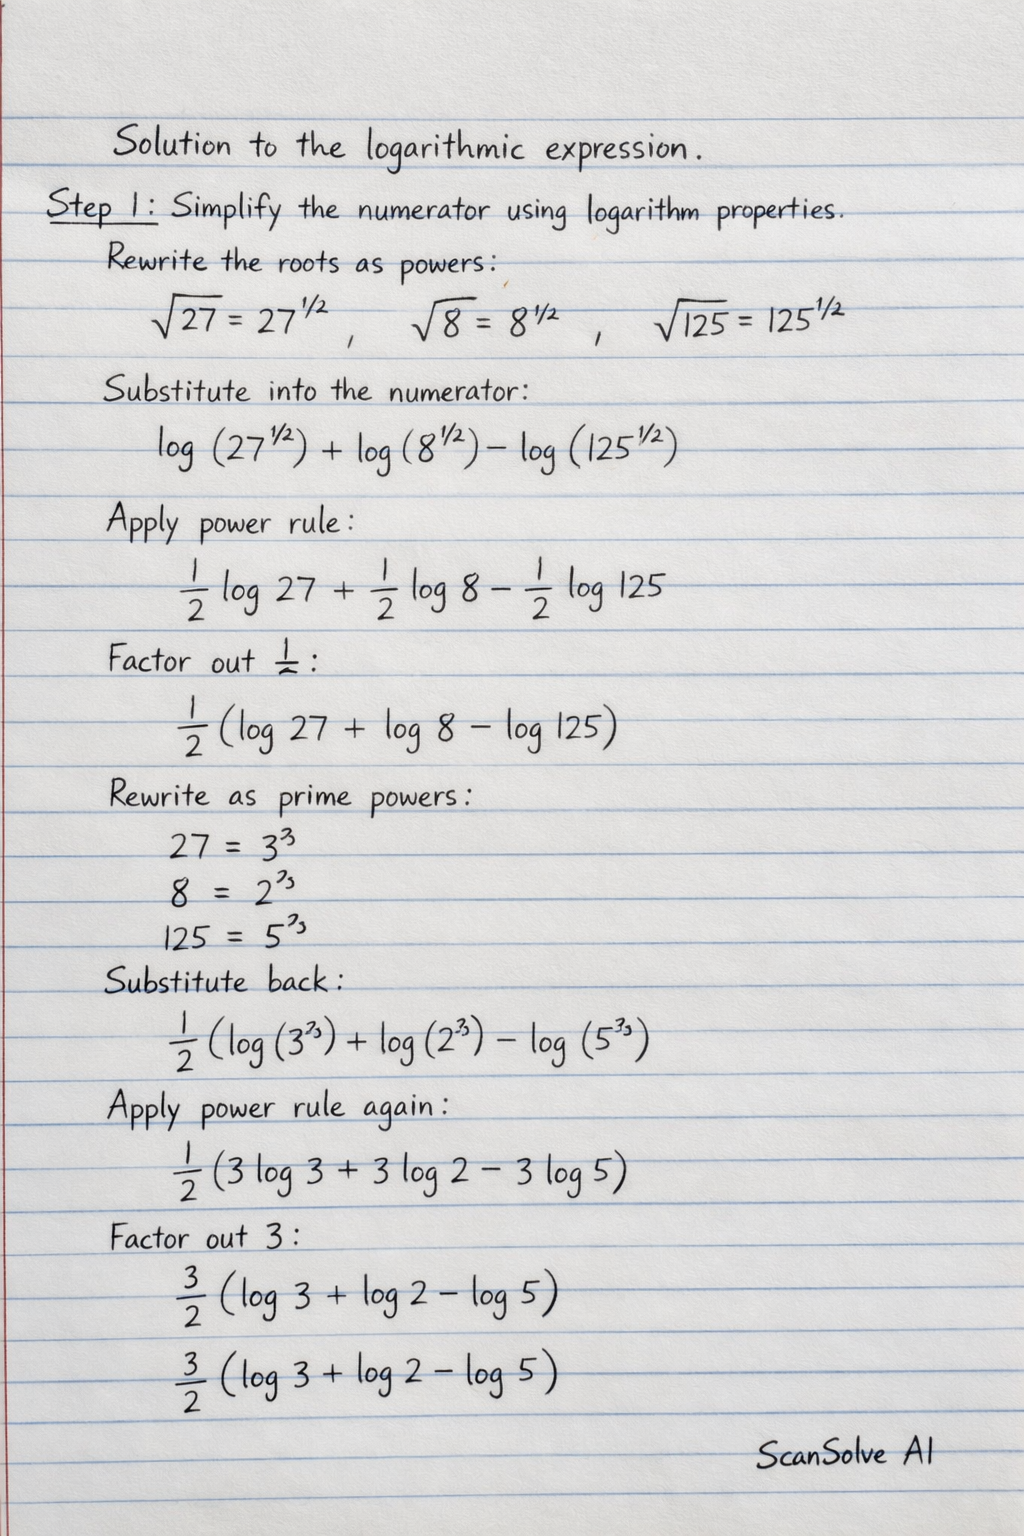 Solution to the logarithmic expression.
Step 1: Simplify the numerator using logarithm properties.
Rewrite the roots as powers:
√27 = 27^1/2 , √8 = 8^1/2 , √125 = 125^1/2
Substitute into the numerator:
log (27^1/2) + log (8^1/2) − log (125^1/2)
Apply power rule:
1/2 log 27 + 1/2 log 8 − 1/2 log 125
Factor out 1/2 :
1/2 (log 27 + log 8 − log 125)
Rewrite as prime powers:
27 = 3^3
8 = 2^3
125 = 5^3
Substitute back:
1/2 (log (3^3) + log (2^3) − log (5^3)
Apply power rule again:
1/2 (3 log 3 + 3 log 2 − 3 log 5)
Factor out 3:
3/2 (log 3 + log 2 − log 5)
3/2 (log 3 + log 2 − log 5)
ScanSolve AI